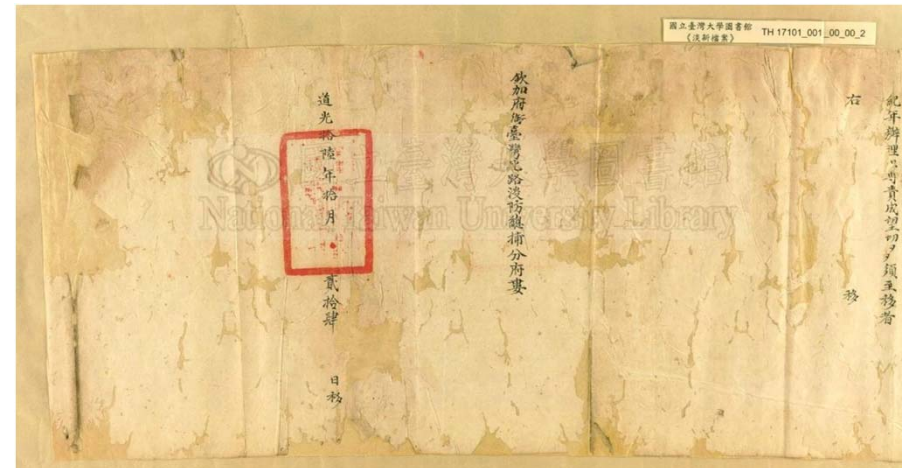 國立臺灣大學圖書館
《淡新檔案》
TH 17101_001_00_00_2
紀年辦理以專責成望切日切須至移者
右 移
欽加府銜臺灣北路淡防總捕分府婁
道光拾陸年拾月 貳拾肆 日移
國立臺灣大學圖書館
National Taiwan University Library